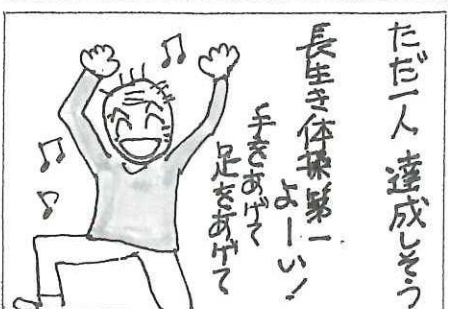 ただ一人 達成しそう
長生き体操第一
よーい!
手をあげて
足をあげて